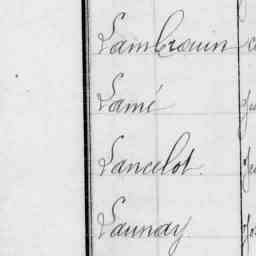 Lambrouin
Lamé
Lancelot.
Launay